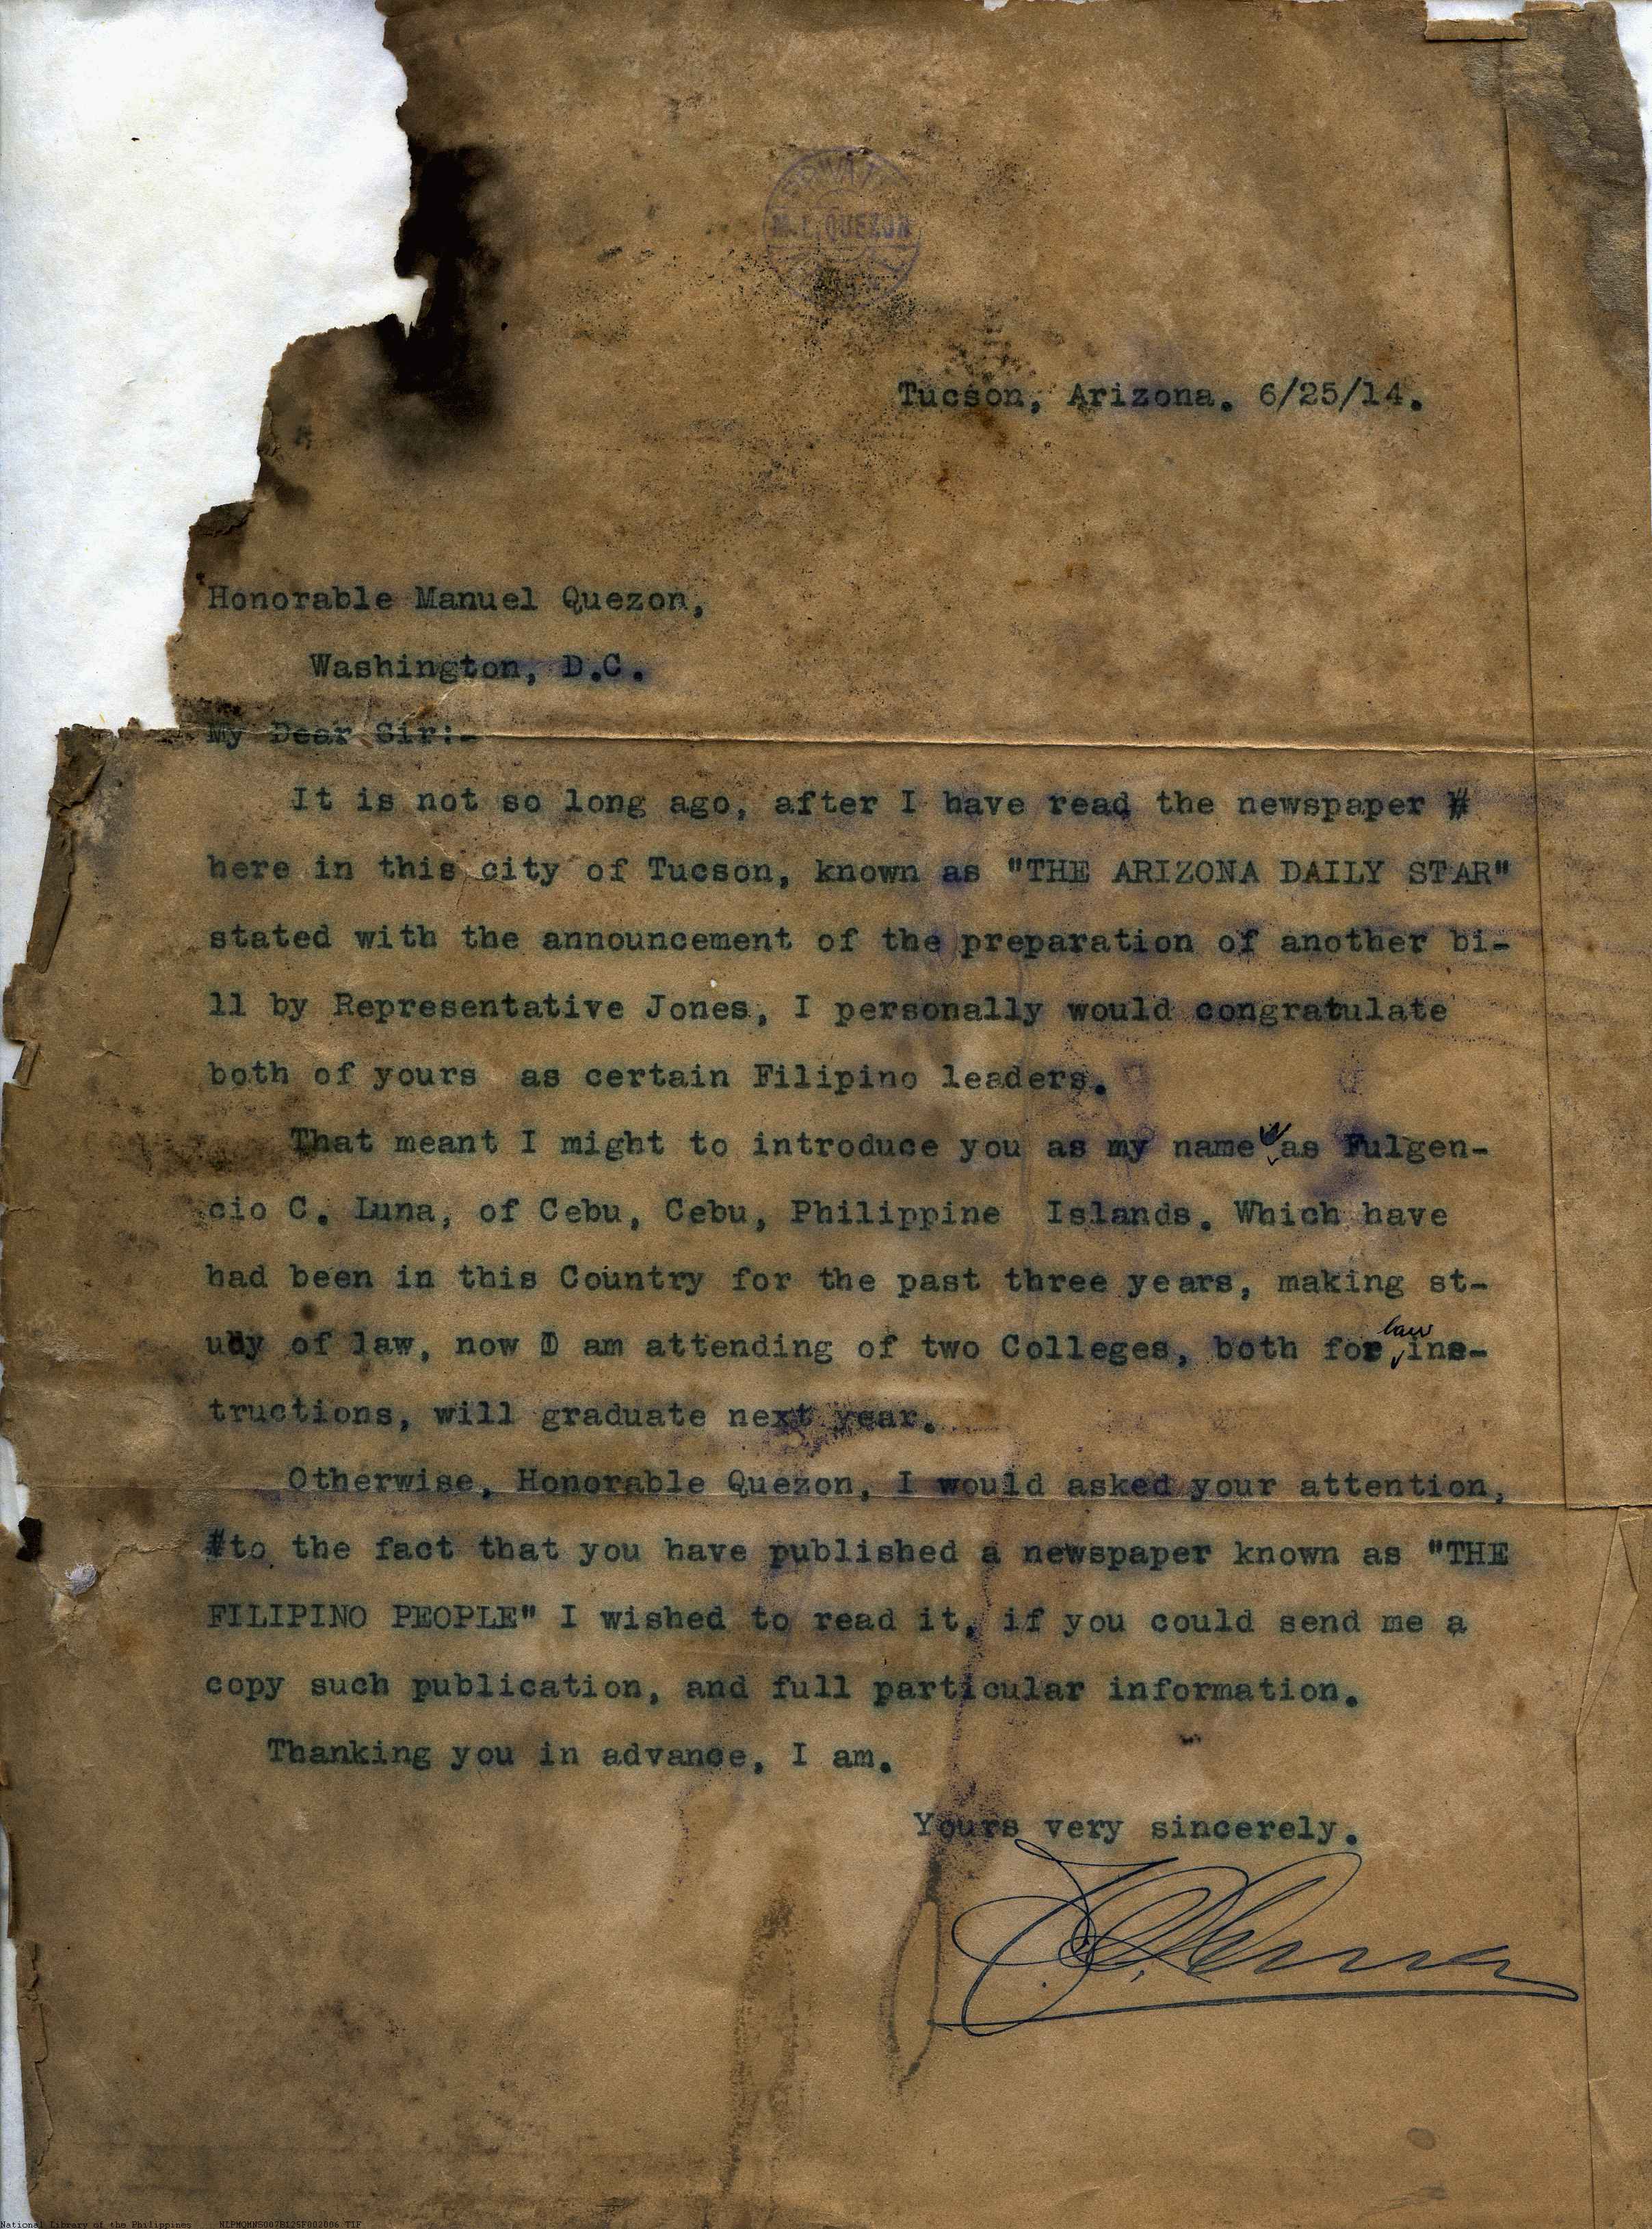 M. L. QUEZON
Tucson, Arizona. 6/25/14.
Honorable Manuel Quezon,
Washington, D.C.
My Dear Sir:-
It is not so long ago, after I have read the newspaper #
here in this city of Tucson, known as "THE ARIZONA DAILY STAR"
stated with the announcement of the preparation of another bi-
ll by Representative Jones, I personally would congratulate
both of yours as certain Filipino leaders.
That meant I might to introduce you as my name as Fulgen-
cio C. Luna, of Cebu, Cebu, Philippine Islands. Which have
had been in this Country for the past three years, making st-
udy of law, now I am attending of two Colleges, both for law ins-
tructions, will graduate next year.
Otherwise, Honorable Quezon, I would asked your attention,
#to the fact that you have published a newspaper known as "THE
FILIPINO PEOPLE" I wished to read it, if you could send me a
copy such publication, and full particular information.
Thanking you in advance, I am.
Yours very sincerely.
F. C. Luna
National Library of the Philippines NLPMQMNS007B126F002006.TIF